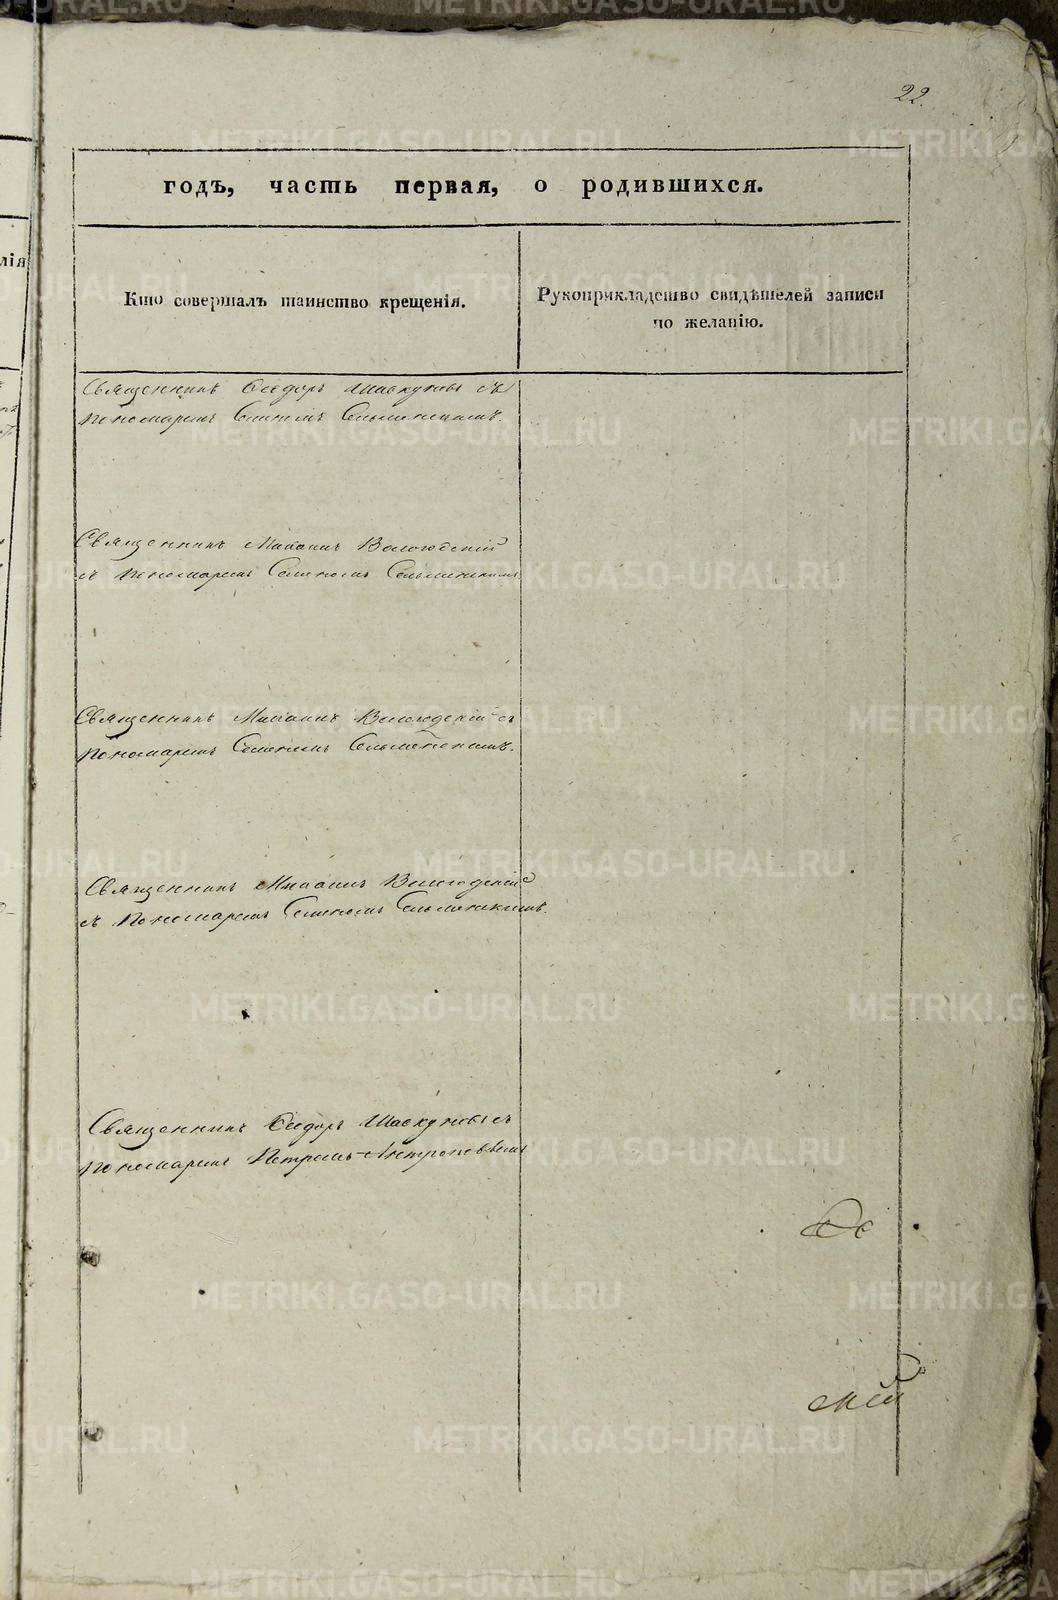 22.
годъ, часть первая, о родившихся.
Кто совершалъ таинство крещенія.
Рукоприкладство свидѣтелей записи
по желанію.
Священникъ Ѳеодоръ Шаскуновъ съ
Пономаремъ
Священникъ Михаилъ Вологодскій
съ Пономаремъ Семеномъ
Священникъ Михаилъ Вологодскій съ
Пономаремъ Семеномъ
Священникъ Михаилъ Вологодскій
съ Пономаремъ Семеномъ
Священникъ Ѳеодоръ съ
Пономаремъ Петромъ
скій
лія
METRIKI.GASO-URAL.RU